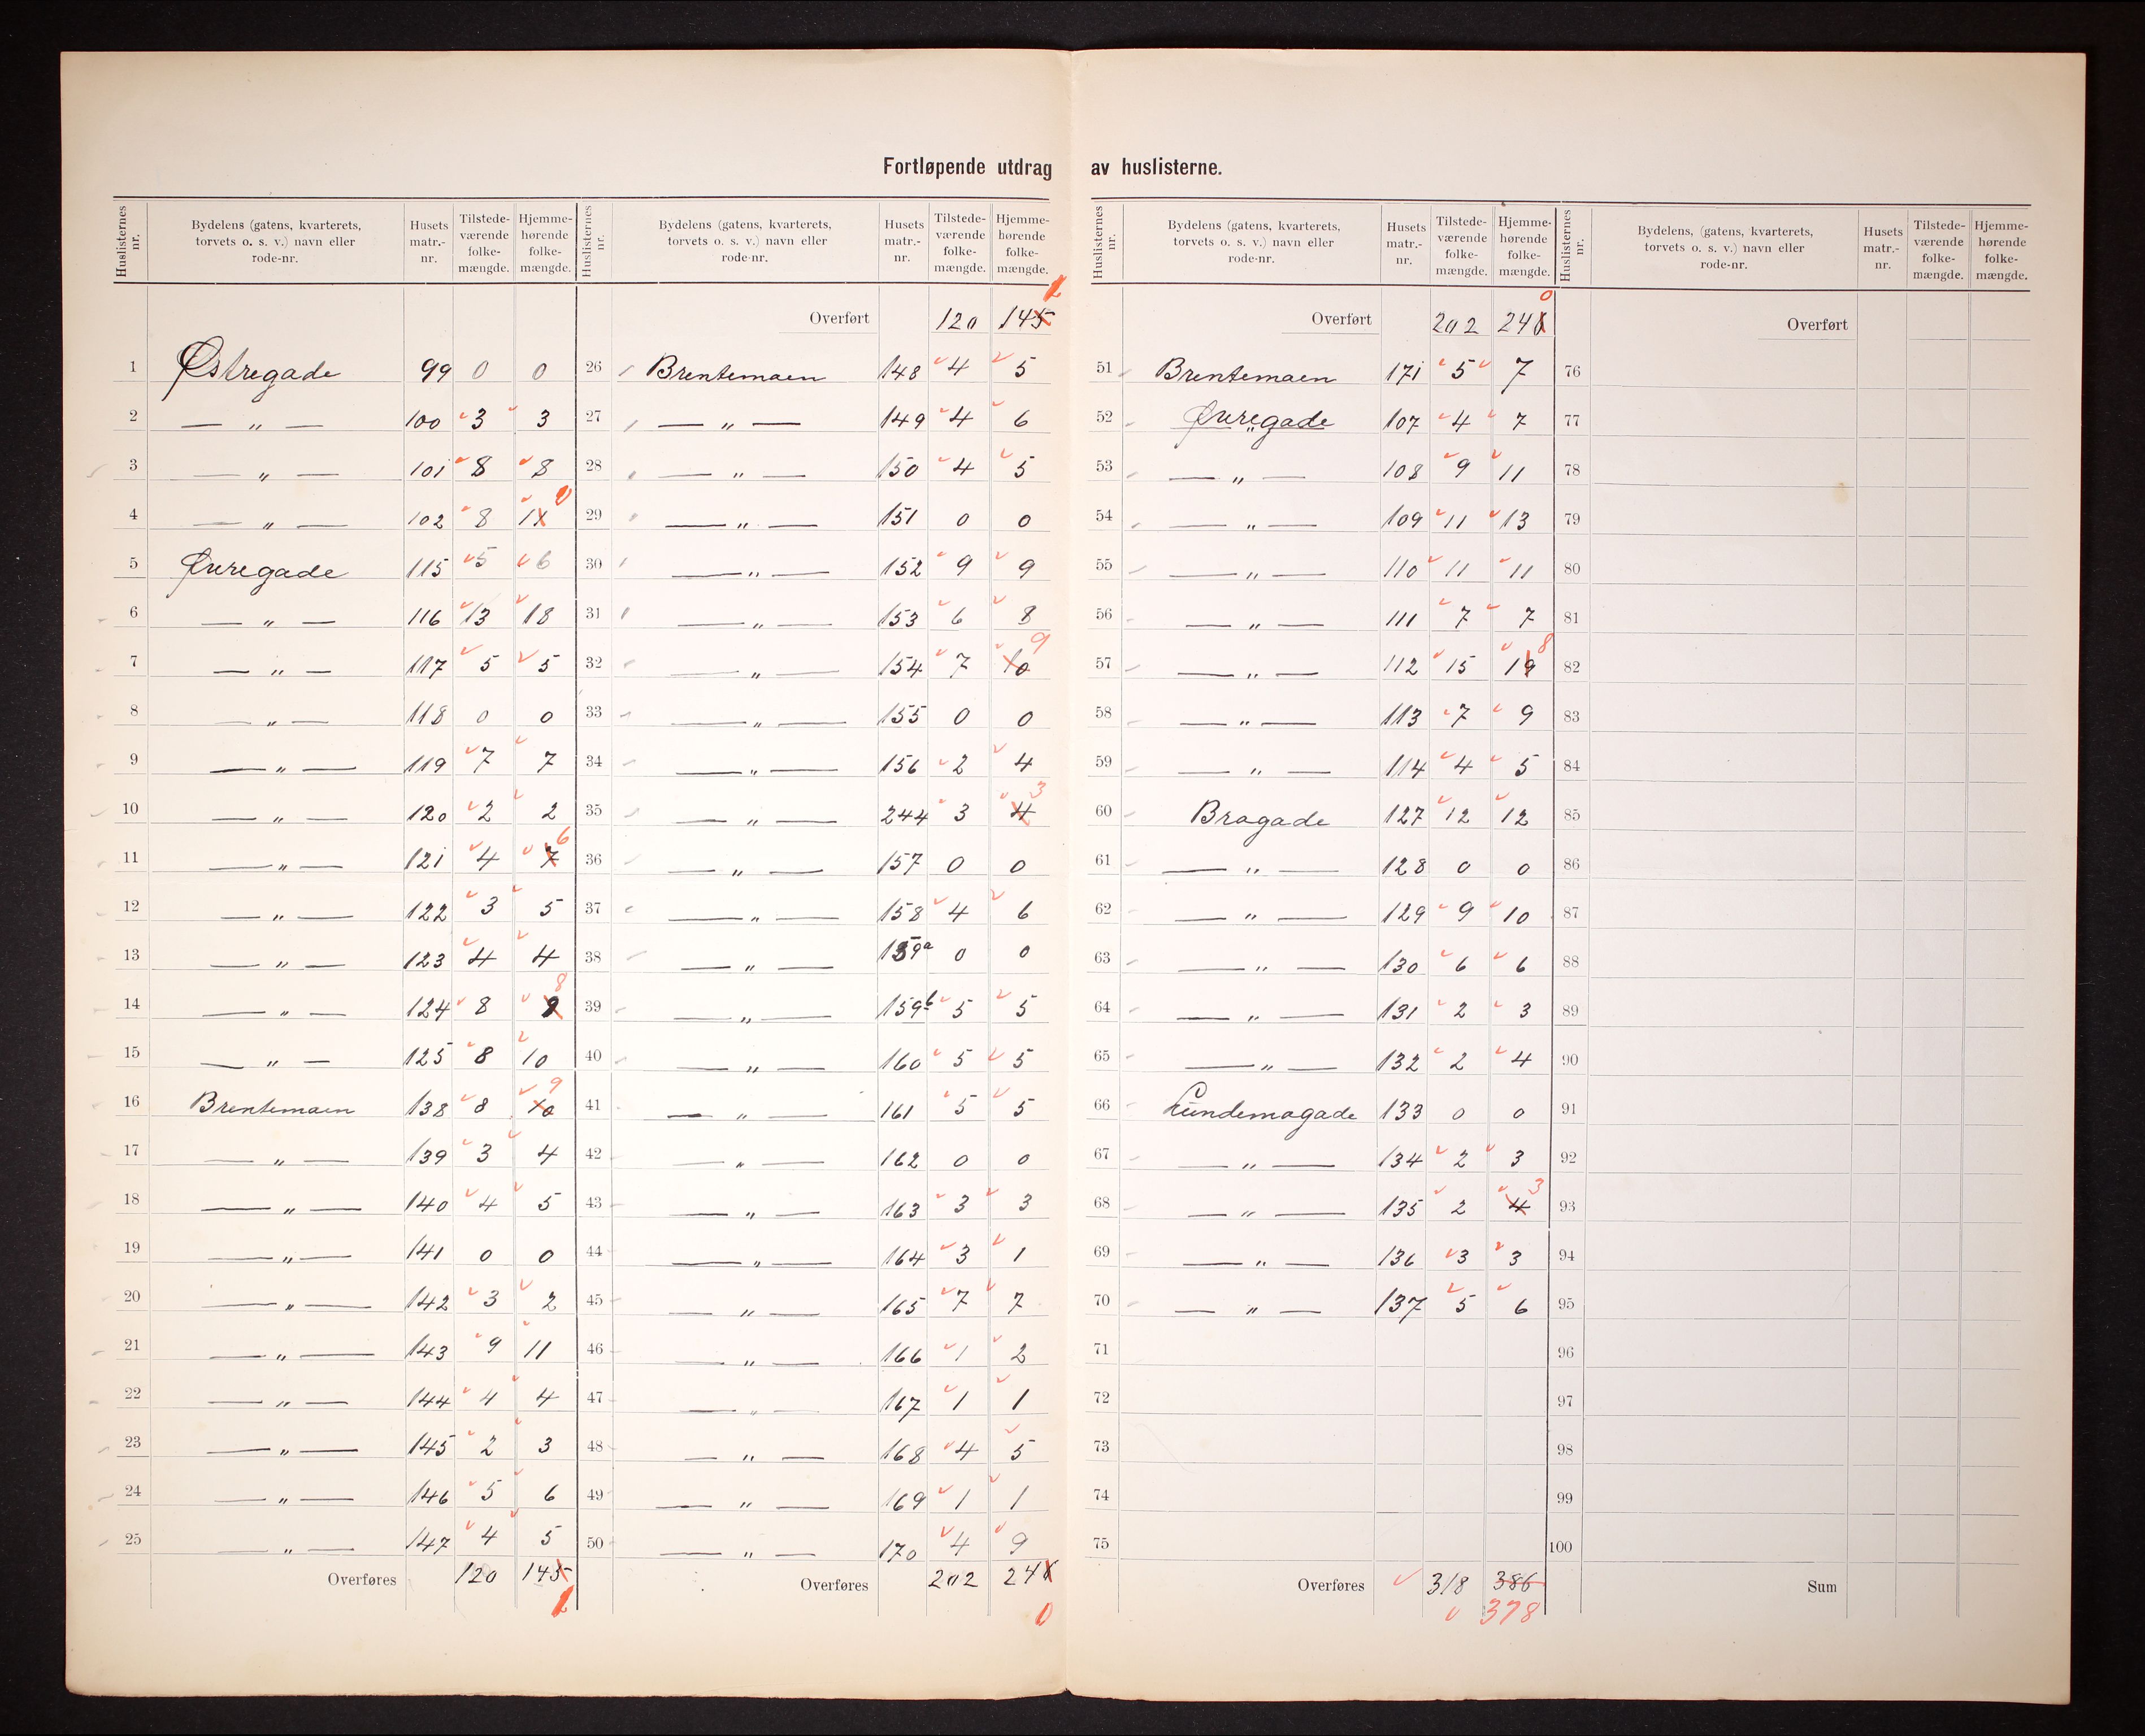 Fortløpende utdrag av huslisterne.
Huslisternes nr. | Bydelens (gatens, kvarterets, torvets o. s. v.) navn eller rode-nr. | Husets matr.-nr. | Tilstede-værende folke-mængde. | Hjemme-hørende folke-mængde.
1 Østregade 99 0 0
2 — „ — 100 3 3
3 — „ — 101 8 8
4 — „ — 102 8 11 0
5 Øvregade 115 5 6
6 — „ — 116 13 18
7 — „ — 117 5 5
8 — „ — 118 0 0
9 — „ — 119 7 7
10 — „ — 120 2 2
11 — „ — 121 4 7 6
12 — „ — 122 3 5
13 — „ — 123 4 4
14 — „ — 124 8 9 8
15 — „ — 125 8 10
16 Brentemoen 138 8 10 9
17 — „ — 139 3 4
18 — „ — 140 4 5
19 — „ — 141 0 0
20 — „ — 142 3 2
21 — „ — 143 9 11
22 — „ — 144 4 4
23 — „ — 145 2 3
24 — „ — 146 5 6
25 — „ — 147 4 5
Overføres 120 145 1
Huslisternes nr. | Bydelens (gatens, kvarterets, torvets o. s. v.) navn eller rode-nr. | Husets matr.-nr. | Tilstede-værende folke-mængde. | Hjemme-hørende folke-mængde.
Overført 120 145 1
26 Brentemoen 148 4 5
27 — „ — 149 4 6
28 — „ — 150 4 5
29 — „ — 151 0 0
30 — „ — 152 9 9
31 — „ — 153 6 8
32 — „ — 154 7 10 9
33 — „ — 155 0 0
34 — „ — 156 2 4
35 — „ — 244 3 4 3
36 — „ — 157 0 0
37 — „ — 158 4 6
38 — „ — 159a 0 0
39 — „ — 159b 5 5
40 — „ — 160 5 5
41 — „ — 161 5 5
42 — „ — 162 0 0
43 — „ — 163 3 3
44 — „ — 164 3 1
45 — „ — 165 7 7
46 — „ — 166 1 2
47 — „ — 167 1 1
48 — „ — 168 4 5
49 — „ — 169 1 1
50 — „ — 170 4 9
Overføres 202 246 0
Huslisternes nr. | Bydelens (gatens, kvarterets, torvets o. s. v.) navn eller rode-nr. | Husets matr.-nr. | Tilstede-værende folke-mængde. | Hjemme-hørende folke-mængde.
Overført 202 246 0
51 Brentemoen 171 5 7
52 Øvregade 107 4 7
53 — „ — 108 9 11
54 — „ — 109 11 13
55 — „ — 110 11 11
56 — „ — 111 7 7
57 — „ — 112 15 19 8
58 — „ — 113 7 9
59 — „ — 114 4 5
60 Brogade 127 12 12
61 — „ — 128 0 0
62 — „ — 129 9 10
63 — „ — 130 6 6
64 — „ — 131 2 3
65 — „ — 132 2 4
66 Lundemogade 133 0 0
67 — „ — 134 2 3
68 — „ — 135 2 4 3
69 — „ — 136 3 3
70 — „ — 137 5 6
71
72
73
74
75
Overføres 318 386
378
Huslisternes nr. | Bydelens, (gatens, kvarterets, torvets o. s. v.) navn eller rode-nr. | Husets matr.-nr. | Tilstede-værende folke-mængde. | Hjemme-hørende folke-mængde.
Overført
76
77
78
79
80
81
82
83
84
85
86
87
88
89
90
91
92
93
94
95
96
97
98
99
100
Sum